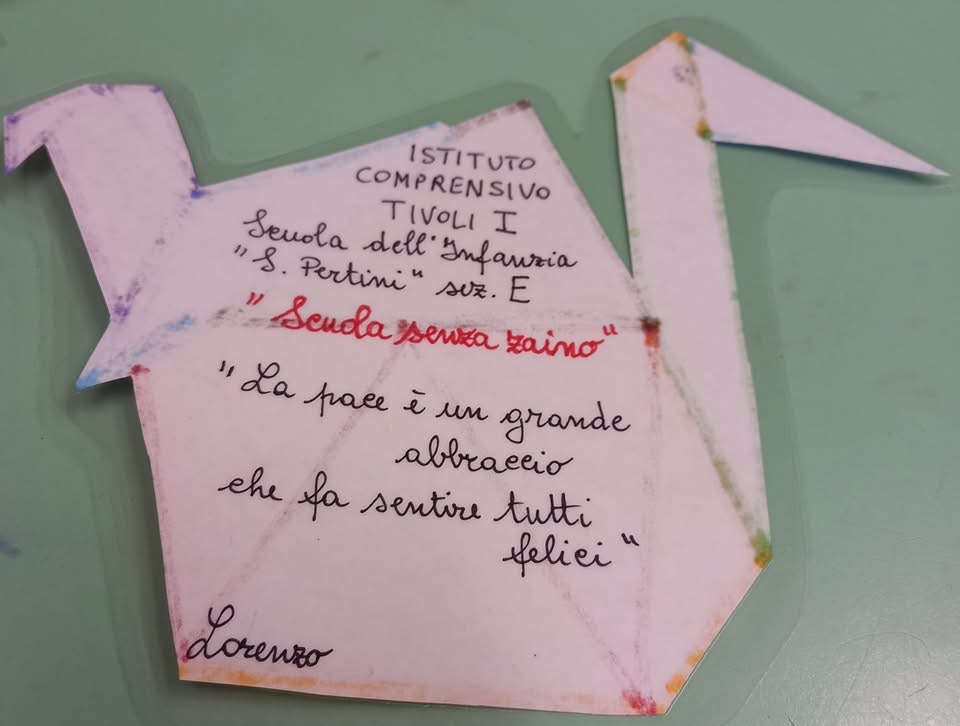 ISTITUTO
COMPRENSIVO
TIVOLI I
Scuola dell'Infanzia
"S. Pertini" sez. E
"Scuola senza zaino"
"La pace è un grande
abbraccio
che fa sentire tutti
felici"
Lorenzo